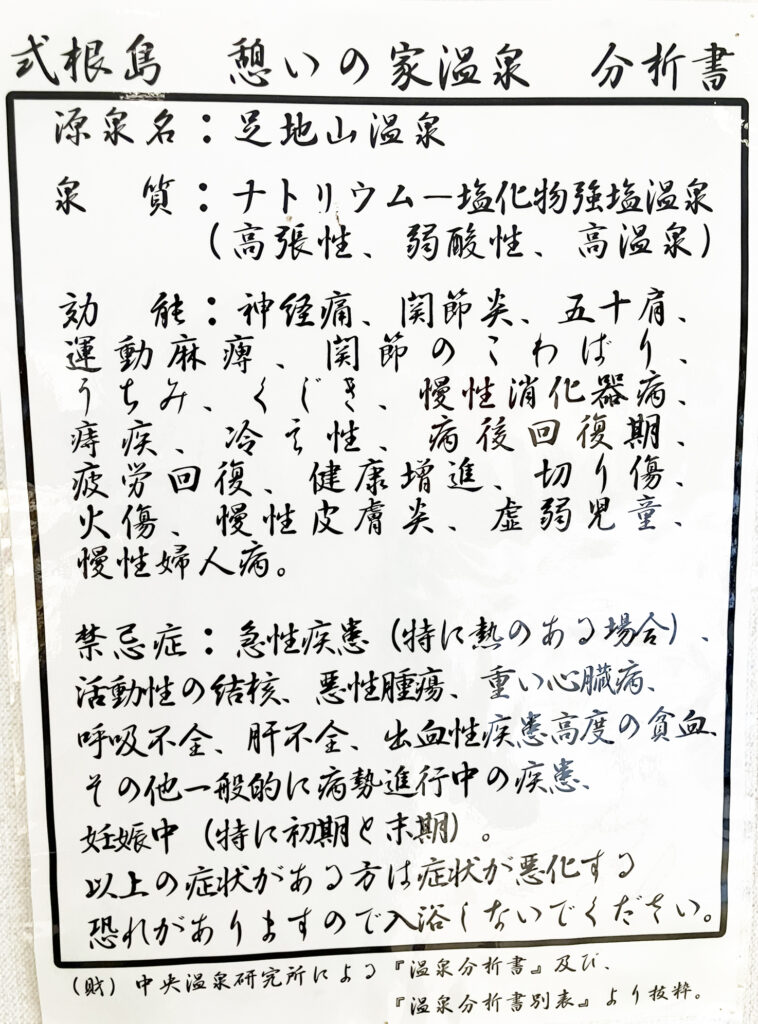 式根島　憩いの家温泉　分析書
源泉名：足地山温泉
泉　質：ナトリウムー塩化物強塩温泉
（高張性、弱酸性、高温泉）
効　能：神経痛、関節炎、五十肩、
運動麻痺、関節のこわばり、
うちみ、くじき、慢性消化器病、
痔疾、冷え性、病後回復期、
疲労回復、健康増進、切り傷、
火傷、慢性皮膚炎、虚弱児童、
慢性婦人病。
禁忌症：急性疾患（特に熱のある場合）、
活動性の結核、悪性腫瘍、重い心臓病、
呼吸不全、肝不全、出血性疾患高度の貧血、
その他一般的に病勢進行中の疾患、
妊娠中（特に初期と末期）。
以上の症状がある方は症状が悪化する
恐れがありますので入浴しないでください。
（財）中央温泉研究所による『温泉分析書』及び、
『温泉分析書別表』より抜粋。